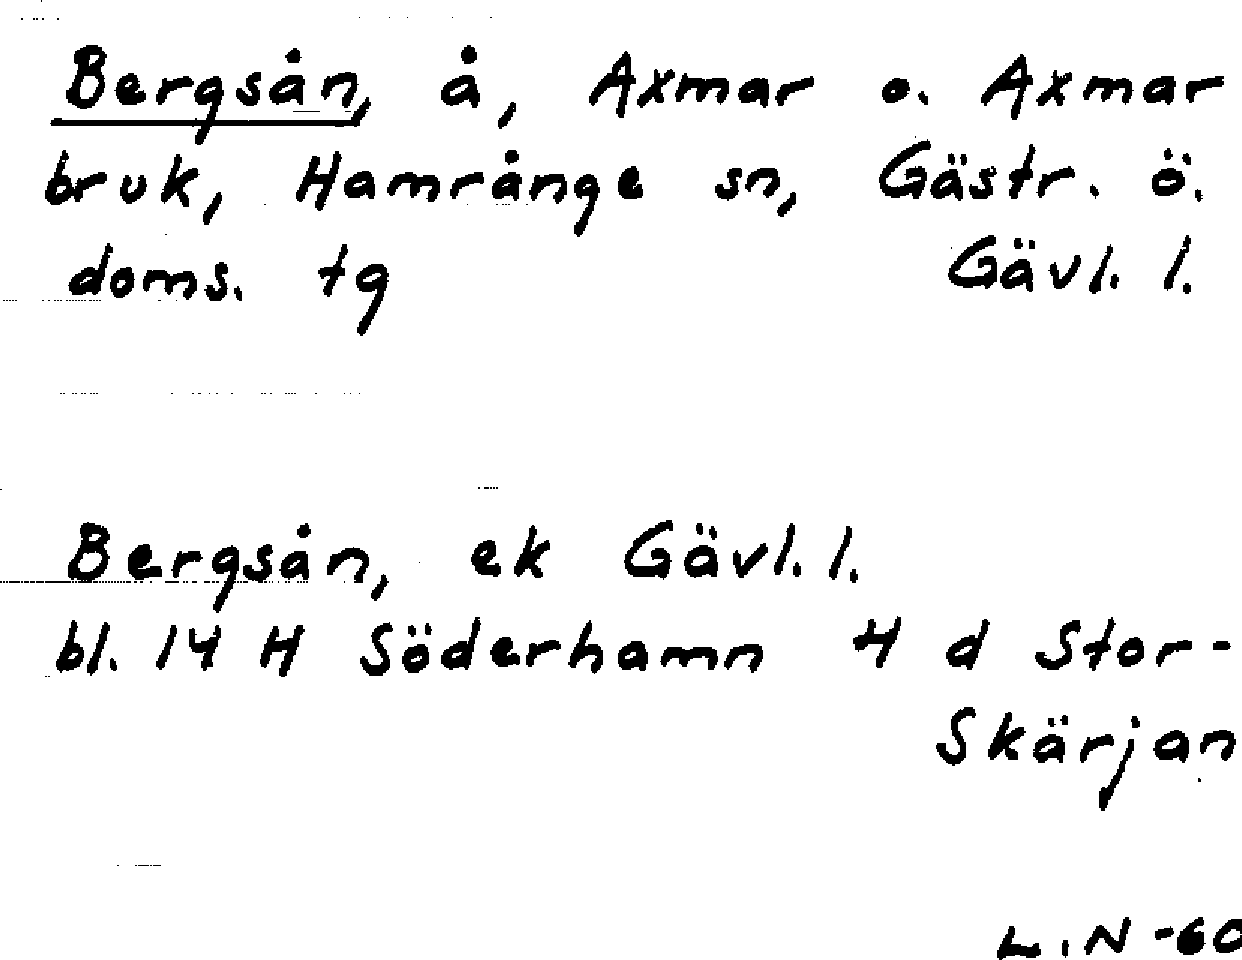 Bergsån, å, Axmar o. Axmar
bruk, Hamrånge sn, Gästr. ö.
doms. tg Gävl. l.
Bergsån, ek Gävl. l.
bl. 14 H Söderhamn 4 d Stor-
Skärjan
L.N -60